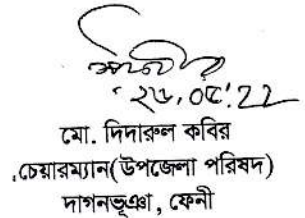 ২৬.০৫.২২
মো. দিদারুল কবির
চেয়ারম্যান(উপজেলা পরিষদ)
দাগনভূঞা, ফেনী